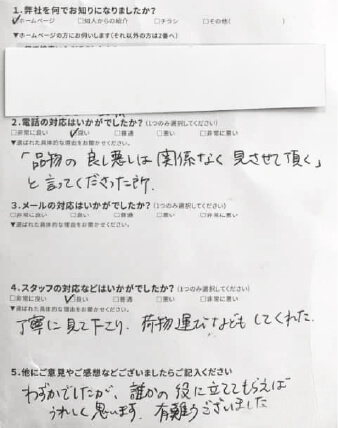 1.弊社を何でお知りになりましたか?
☑ホームページ □知人からの紹介 □チラシ □その他( )
▼ホームページの方にお伺いします(それ以外の方は2番へ)
2.電話の対応はいかがでしたか?(1つのみ選択してください)
□非常に良い ☑良い □普通 □悪い □非常に悪い
▼選ばれた具体的な理由をお聞かせください。
「品物の良し悪しは関係なく見させて頂く」
と言ってくださった所.
3.メールの対応はいかがでしたか?(1つのみ選択してください)
□非常に良い □良い □普通 □悪い □非常に悪い
▼選ばれた具体的な理由をお聞かせください。
4.スタッフの対応などはいかがでしたか?(1つのみ選択してください)
□非常に良い ☑良い □普通 □悪い □非常に悪い
▼選ばれた具体的な理由をお聞かせください。
丁寧に見て下さり、荷物運びなどもしてくれた.
5.他にご意見やご感想などございましたらご記入ください
わずかでしたが、誰かの役に立ててもらえば
うれしく思います. 有難うございました